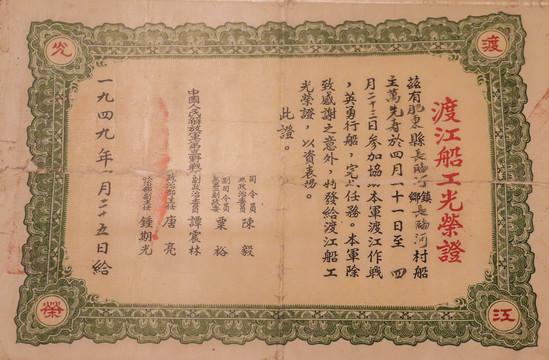 渡江
光榮
渡江船工光榮證
茲有肥東縣長臨河鎮鄉長臨河村船
主萬先壽於四月一十一日至四
月二十三日參加協助本軍渡江作戰
,英勇行船,完成任務。本軍除
致感謝之意外,特發給渡江船工
光榮證,以資表揚。
此證。
中國人民解放軍第三野戰軍
司令員兼政治委員 陳毅
副司令員 粟裕
副政治委員 譚震林
政治部主任 唐亮
政治部副主任 鍾期光
一九四九年一月二十五日給